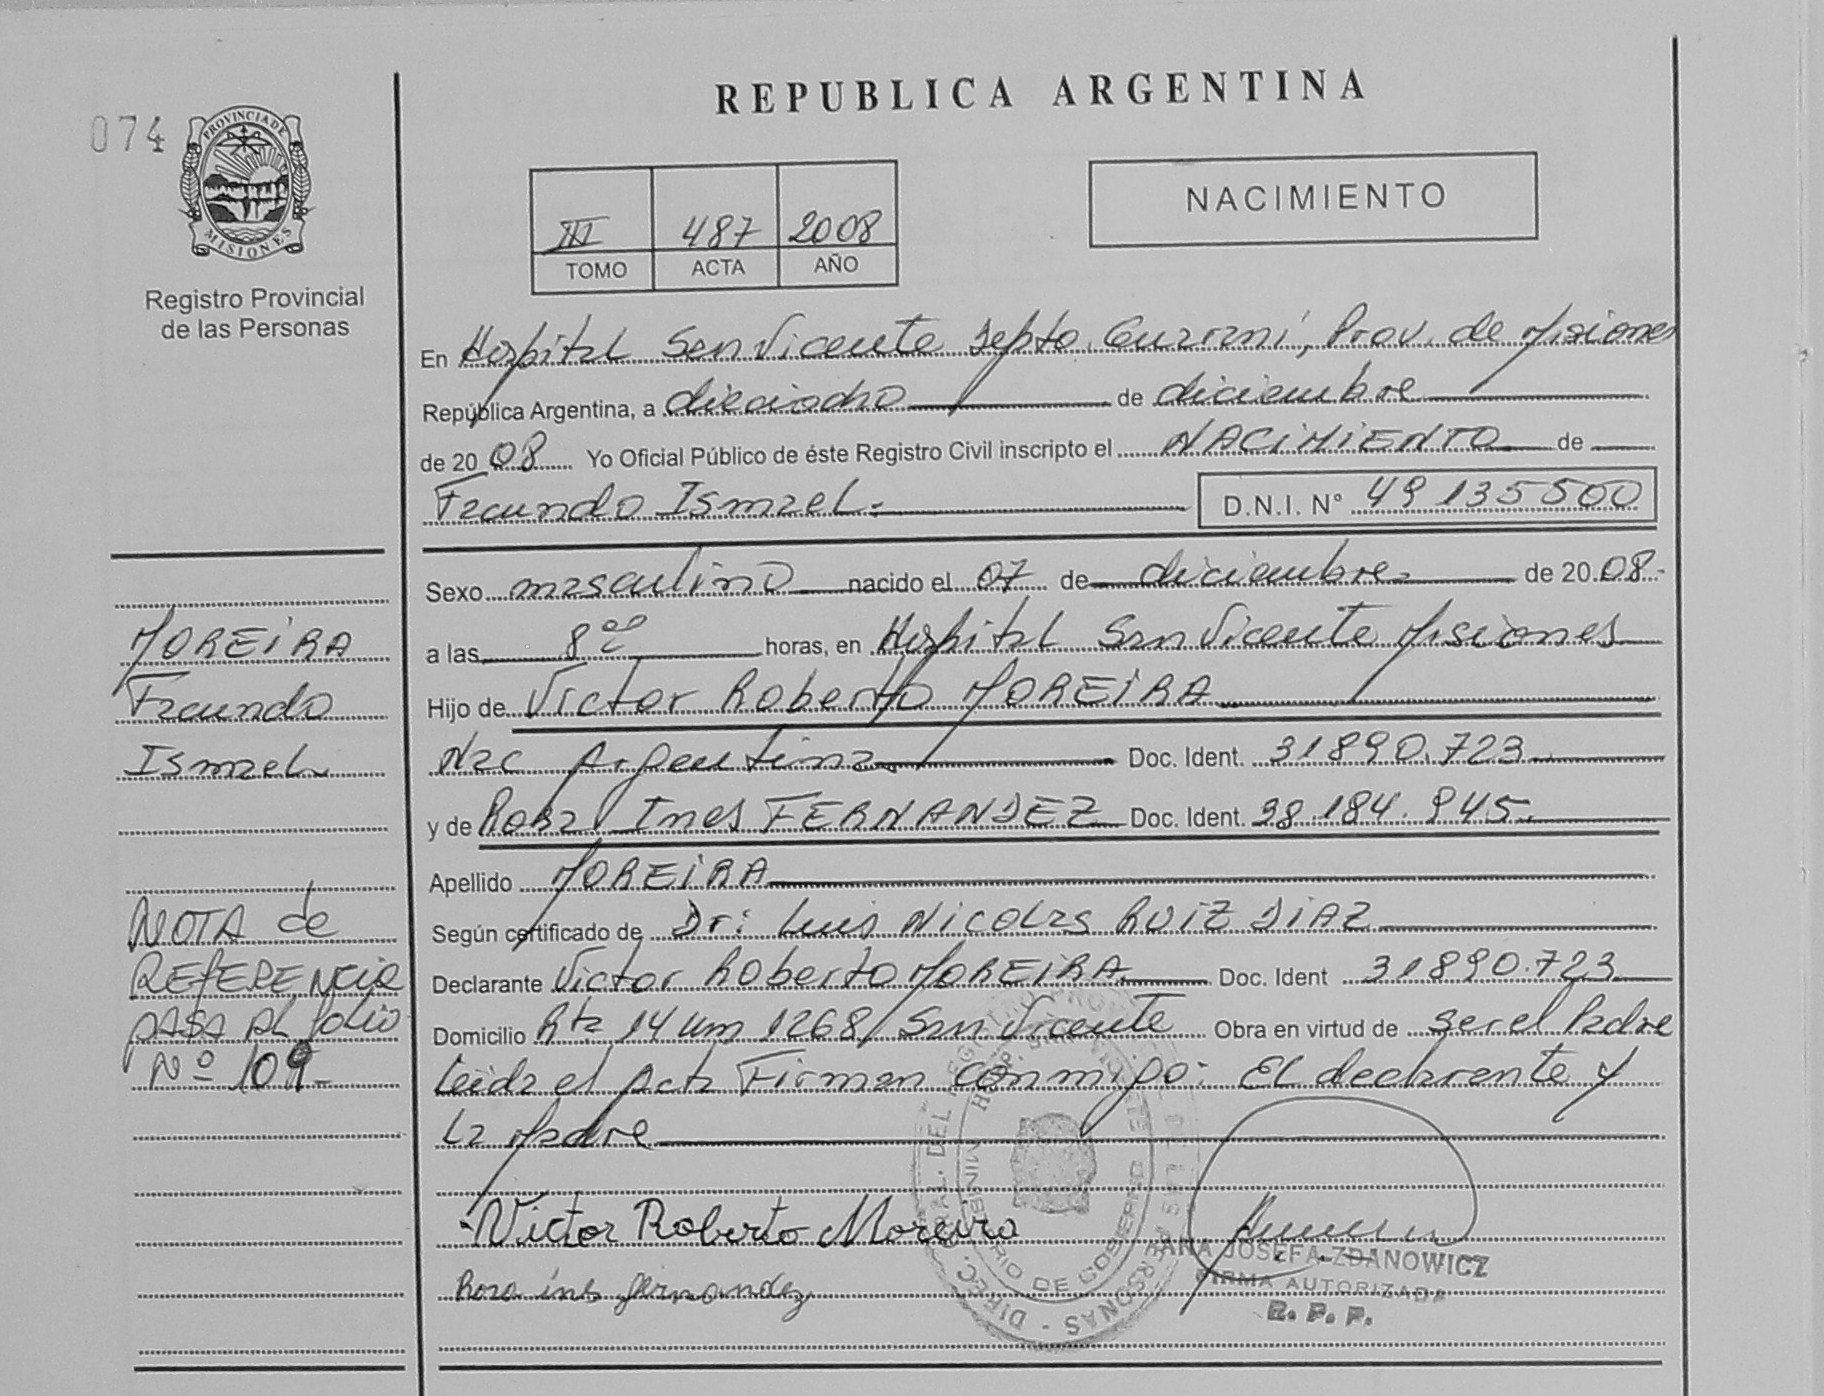 REPUBLICA ARGENTINA
074
PROVINCIA DE
MISIONES
Registro Provincial
de las Personas
NACIMIENTO
III 487 2008
TOMO ACTA AÑO
En Hospital San Vicente Depto. Guarani, Prov. de Misiones
República Argentina, a dieciocho de diciembre
de 20 08 Yo Oficial Público de éste Registro Civil inscripto el NACIMIENTO de
Facundo Ismael.- D.N.I. N° 49135500
Sexo masculino nacido el 07 de diciembre de 20 08.-
a las 8 horas, en Hospital San Vicente Misiones
Hijo de Victor Roberto MOREIRA
Nac Argentina Doc. Ident. 31890.723
y de Rosa Ines FERNANDEZ Doc. Ident. 38.184.945.
Apellido MOREIRA
Según certificado de Dr: Luis Nicolas RUIZ DIAZ
Declarante Victor Roberto MOREIRA Doc. Ident 31890.723
Domicilio Rta 14 km 1268/ San Vicente Obra en virtud de ser el Padre
Leida el Acta Firman conmigo: El declarente y
La Madre
Victor Roberto Moreira
Rosa ines fernandez
JOSEFA ZDANOWICZ
FIRMA AUTORIZADA
R. P. P.
MOREIRA
Facundo
Ismael
NOTA de
REFERENCIA
PASA AL folio
Nº 109-